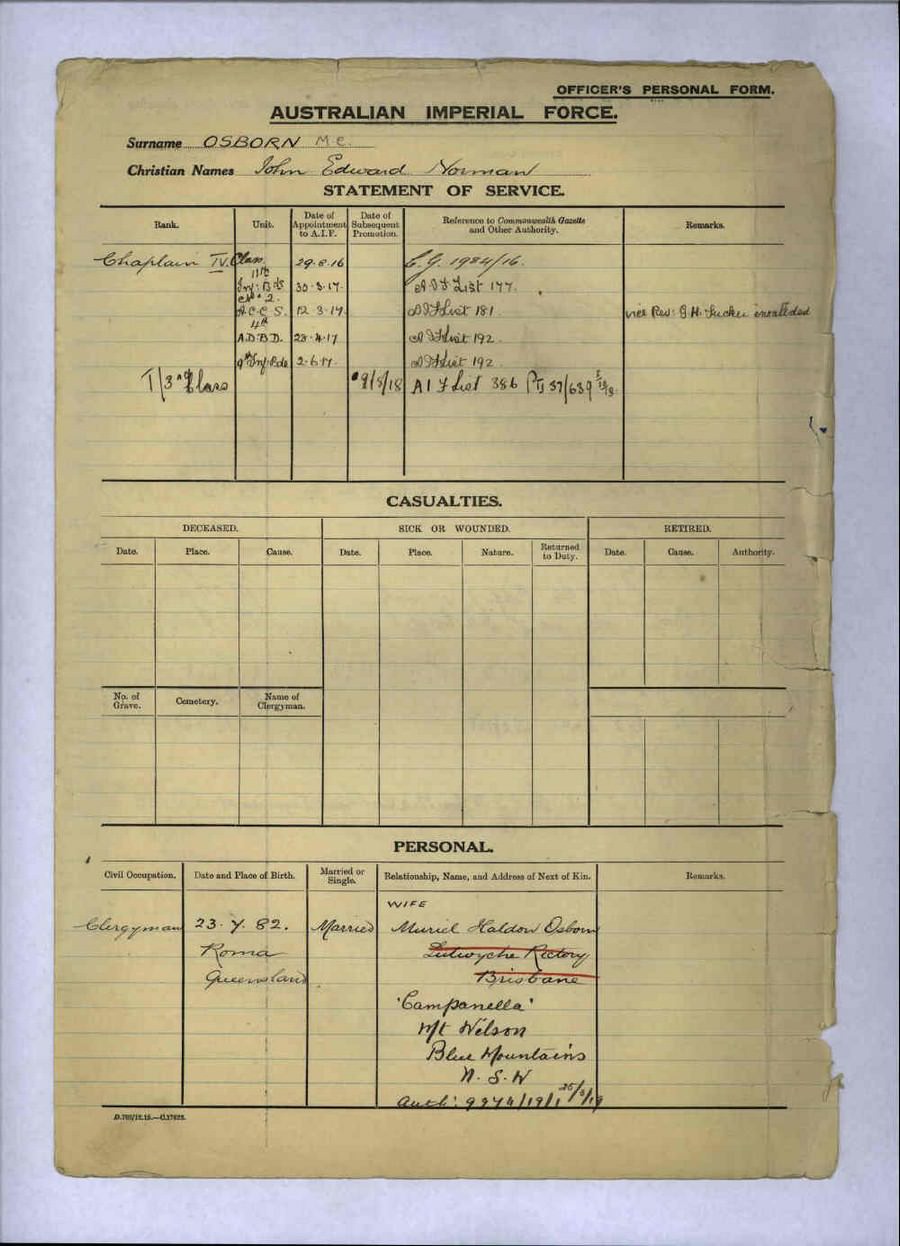 OFFICER'S PERSONAL FORM.
AUSTRALIAN IMPERIAL FORCE.
Surname OSBORN M.C.
Christian Names John Edward Norman
STATEMENT OF SERVICE.
Rank. Unit. Date of Appointment to A.I.F. Date of Subsequent Promotion. Reference to Commonwealth Gazette and Other Authority. Remarks.
Chaplain IV. Class. 29.8.16 C.G. 1984/16.
11th
Inf: Bde 30.3.17. A I F List 177.
No 2.
A.C.C.S. 12.3.17 A I F List 181. vice Rev: G.H. Tucker invalided
4th
A.D.B.D. 28.4.17 A I F List 192.
9th Inf: Bde 2.6.17. A I F List 192.
T/3rd Class 9/8/18 A I F List 386
CASUALTIES.
DECEASED. SICK OR WOUNDED. RETIRED.
Date. Place. Cause. Date. Place. Nature. Returned to Duty. Date. Cause. Authority.
No. of Grave. Cemetery. Name of Clergyman.
PERSONAL.
Civil Occupation. Date and Place of Birth. Married or Single. Relationship, Name, and Address of Next of Kin. Remarks.
WIFE
Clergyman 23.7.82. Married Muriel Haldon Osborn
Roma Lutwyche Rectory
Queensland Brisbane
'Campanella'
Mt Wilson
Blue Mountains
N.S.W
Auth:
D.789/12.15.—C.17622.